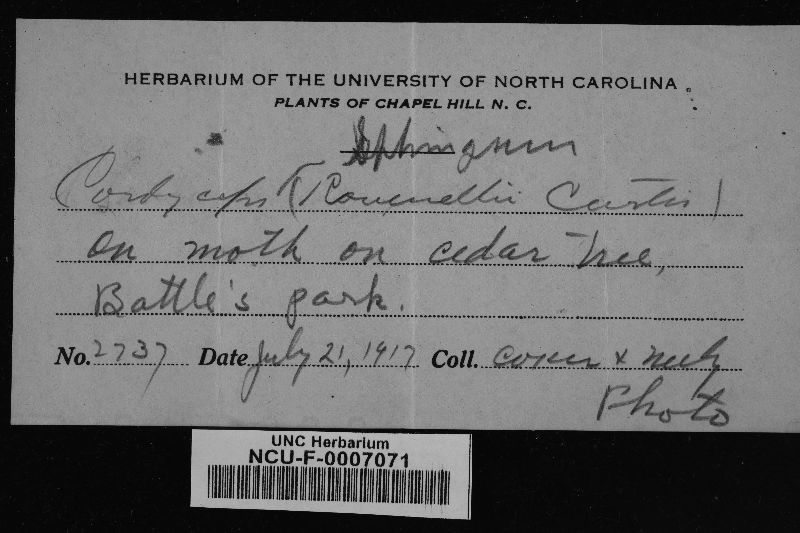 HERBARIUM OF THE UNIVERSITY OF NORTH CAROLINA
PLANTS OF CHAPEL HILL N. C.
Sphingum
Cordyceps (Ravenelii Curtis)
on moth on cedar tree,
Battle's park.
No. 2737 Date July 21, 1917 Coll. Coker &
Photo
UNC Herbarium
NCU-F-0007071